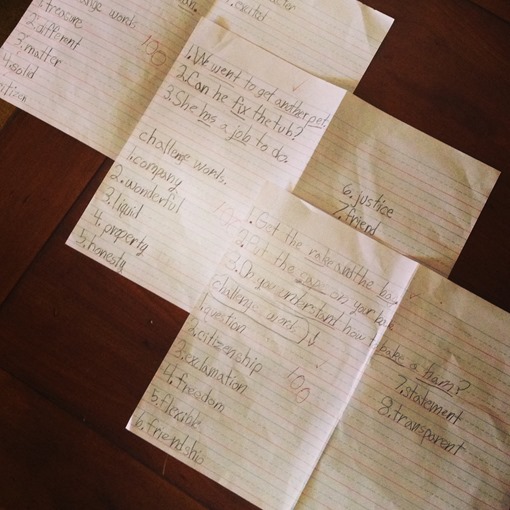 words
1. treasure
2. different
3. matter
4. solid
100
1. We went to get another pet.
2. Can he fix the tub?
3. She has a job to do.
challenge words.
1. company
2. wonderful
3. liquid
4. property
5. honesty
6. justice
7. friend
1. Get the rake and the
2. Put the on your
3. Do you understand how to bake a ham?
challenge words
1. question
2. citizenship
3. exclamation
4. freedom
5. flexible
6. friendship
100
7. statement
8. transparent